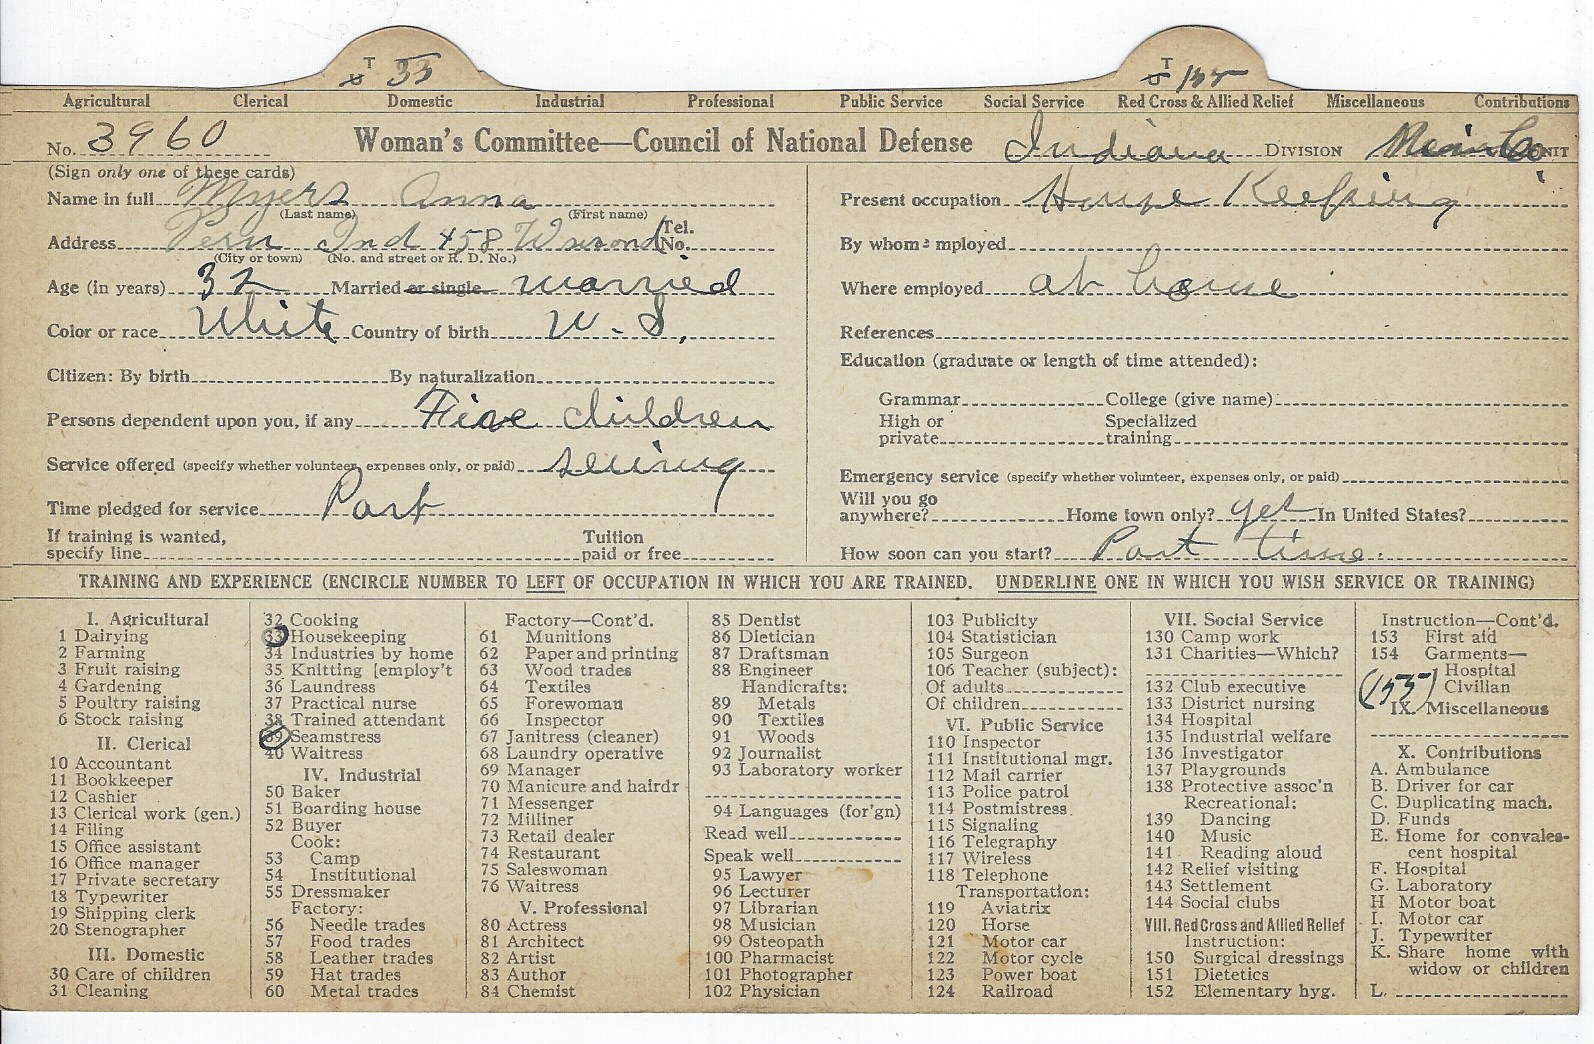 T 33 T 155
Agricultural Clerical Domestic Industrial Professional Public Service Social Service Red Cross & Allied Relief Miscellaneous Contributions
No. 3960 Woman's Committee—Council of National Defense Indiana DIVISION Miami Co UNIT
(Sign only one of these cards)
Name in full Myers Anna
(Last name) (First name)
Address Peru Ind 458 W second Tel. No.
(City or town) (No. and street or R. D. No.)
Age (in years) 32 Married or single married
Color or race White Country of birth U.S.
Citizen: By birth By naturalization
Persons dependent upon you, if any Five children
Service offered (specify whether volunteer, expenses only, or paid) seuing
Time pledged for service Part
If training is wanted,
specify line Tuition paid or free
Present occupation House Keeping
By whom employed
Where employed at house
References
Education (graduate or length of time attended):
Grammar College (give name)
High or private Specialized training
Emergency service (specify whether volunteer, expenses only, or paid)
Will you go anywhere? Home town only? yes In United States?
How soon can you start? Part time.
TRAINING AND EXPERIENCE (ENCIRCLE NUMBER TO LEFT OF OCCUPATION IN WHICH YOU ARE TRAINED. UNDERLINE ONE IN WHICH YOU WISH SERVICE OR TRAINING)
I. Agricultural
1 Dairying
2 Farming
3 Fruit raising
4 Gardening
5 Poultry raising
6 Stock raising
II. Clerical
10 Accountant
11 Bookkeeper
12 Cashier
13 Clerical work (gen.)
14 Filing
15 Office assistant
16 Office manager
17 Private secretary
18 Typewriter
19 Shipping clerk
20 Stenographer
III. Domestic
30 Care of children
31 Cleaning
32 Cooking
33 Housekeeping
34 Industries by home
35 Knitting [employ't
36 Laundress
37 Practical nurse
38 Trained attendant
39 Seamstress
40 Waitress
IV. Industrial
50 Baker
51 Boarding house
52 Buyer
Cook:
53 Camp
54 Institutional
55 Dressmaker
Factory:
56 Needle trades
57 Food trades
58 Leather trades
59 Hat trades
60 Metal trades
Factory—Cont'd.
61 Munitions
62 Paper and printing
63 Wood trades
64 Textiles
65 Forewoman
66 Inspector
67 Janitress (cleaner)
68 Laundry operative
69 Manager
70 Manicure and hairdr
71 Messenger
72 Milliner
73 Retail dealer
74 Restaurant
75 Saleswoman
76 Waitress
V. Professional
80 Actress
81 Architect
82 Artist
83 Author
84 Chemist
85 Dentist
86 Dietician
87 Draftsman
88 Engineer
Handicrafts:
89 Metals
90 Textiles
91 Woods
92 Journalist
93 Laboratory worker
94 Languages (for'gn)
Read well
Speak well
95 Lawyer
96 Lecturer
97 Librarian
98 Musician
99 Osteopath
100 Pharmacist
101 Photographer
102 Physician
103 Publicity
104 Statistician
105 Surgeon
106 Teacher (subject):
Of adults
Of children
VI. Public Service
110 Inspector
111 Institutional mgr.
112 Mail carrier
113 Police patrol
114 Postmistress
115 Signaling
116 Telegraphy
117 Wireless
118 Telephone
Transportation:
119 Aviatrix
120 Horse
121 Motor car
122 Motor cycle
123 Power boat
124 Railroad
VII. Social Service
130 Camp work
131 Charities—Which?
132 Club executive
133 District nursing
134 Hospital
135 Industrial welfare
136 Investigator
137 Playgrounds
138 Protective assoc'n
Recreational:
139 Dancing
140 Music
141 Reading aloud
142 Relief visiting
143 Settlement
144 Social clubs
VIII. Red Cross and Allied Relief
Instruction:
150 Surgical dressings
151 Dietetics
152 Elementary hyg.
Instruction—Cont'd.
153 First aid
154 Garments—
Hospital
(155) Civilian
IX. Miscellaneous
X. Contributions
A. Ambulance
B. Driver for car
C. Duplicating mach.
D. Funds
E. Home for convales-
cent hospital
F. Hospital
G. Laboratory
H Motor boat
I. Motor car
J. Typewriter
K. Share home with
widow or children
L.